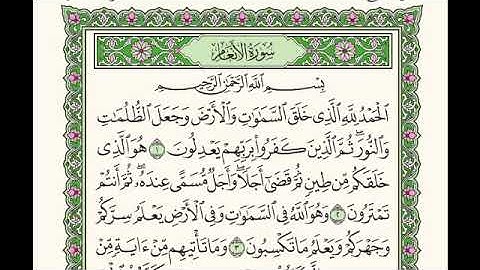 سُورَةُ الأَنْعَامِ
بِسْمِ اللَّهِ الرَّحْمَٰنِ الرَّحِيمِ
الْحَمْدُ لِلَّهِ الَّذِي خَلَقَ السَّمَاوَاتِ وَالْأَرْضَ وَجَعَلَ الظُّلُمَاتِ
وَالنُّورَ ۖ ثُمَّ الَّذِينَ كَفَرُوا بِرَبِّهِمْ يَعْدِلُونَ ١ هُوَ الَّذِي
خَلَقَكُم مِّن طِينٍ ثُمَّ قَضَىٰ أَجَلًا ۖ وَأَجَلٌ مُّسَمًّى عِندَهُ ۖ ثُمَّ أَنتُمْ
تَمْتَرُونَ ٢ وَهُوَ اللَّهُ فِي السَّمَاوَاتِ وَفِي الْأَرْضِ يَعْلَمُ سِرَّكُمْ
وَجَهْرَكُمْ وَيَعْلَمُ مَا تَكْسِبُونَ ٣ وَمَا تَأْتِيهِم مِّنْ ءَايَةٍ مِّنْ